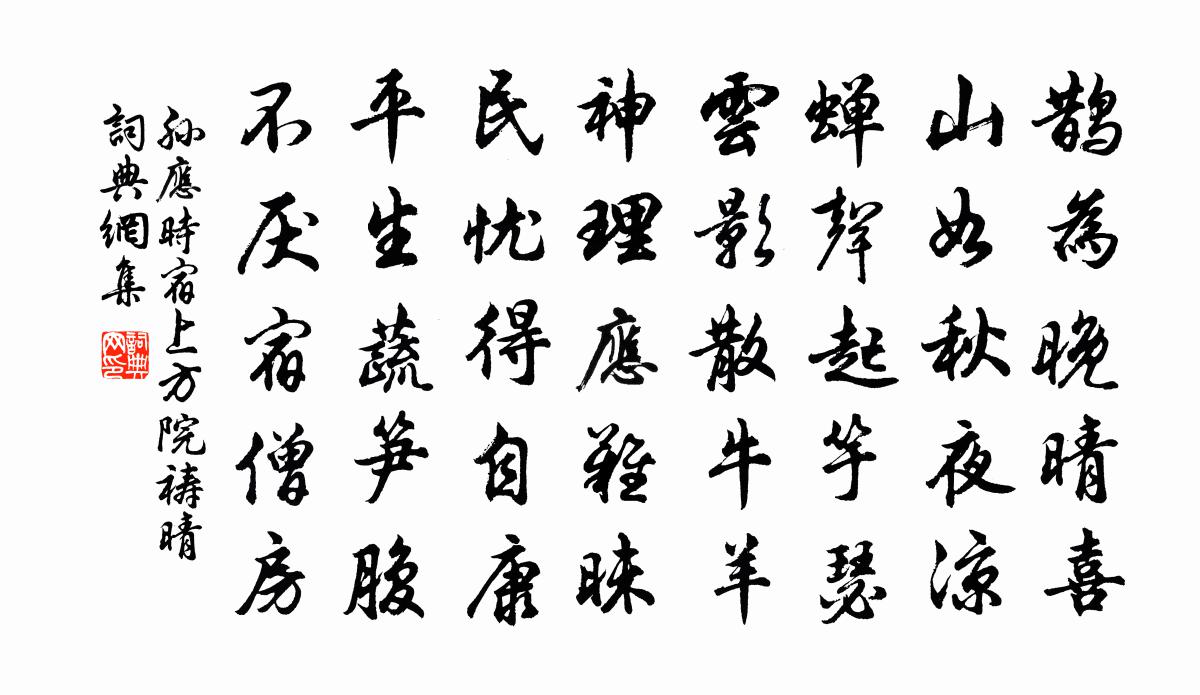 鹊為晚晴喜
山如秋夜凉
蝉聲起竽瑟
雲影散牛羊
神理應難昧
民忧得自康
平生蔬笋腹
不厌宿僧房
孫應時宿上方院祷晴
詞典網集